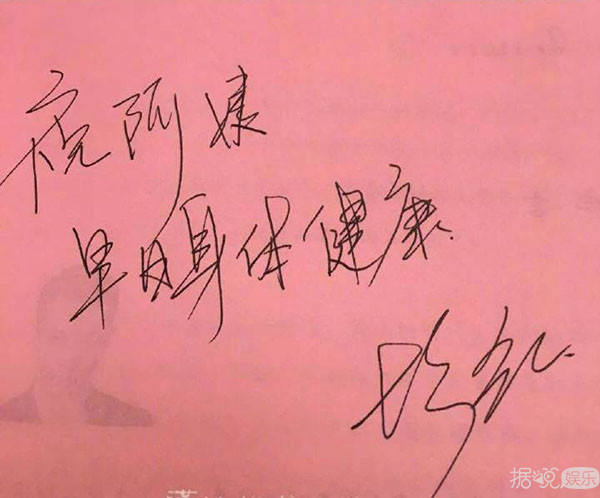 祝阿姨
早日身体健康
据说娱乐